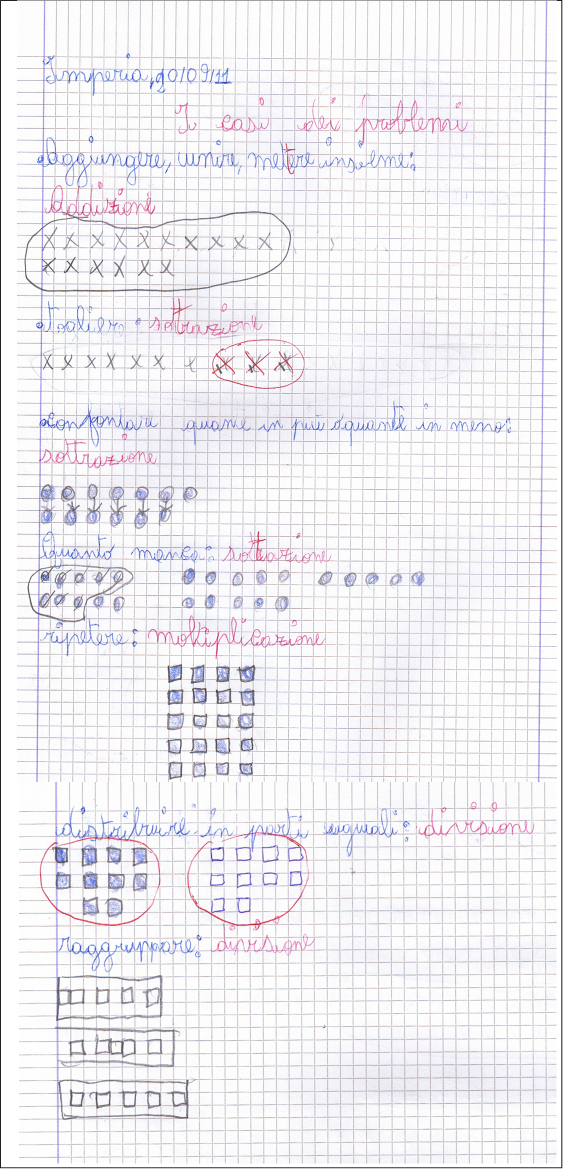 Imperia, 20/09/11
I casi dei problemi
Aggiungere, unire, mettere insieme:
Addizioni
X X X X X X X X X X
X X X X X X
togliere: sottrazione
X X X X X X X X X
confontare quane in più o quante in meno:
sottrazione
Quanto manca: sottrazione
ripetere: moltiplicazione
distribuire in parti uguali: divisione
raggruppare: divisione